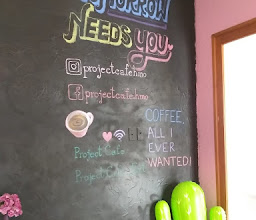 MORROW
NEEDS YOU
projectcafehmo
projectcafe.hmo
COFFEE,
ALL I
EVER
WANTED!
Project Cafe
Project